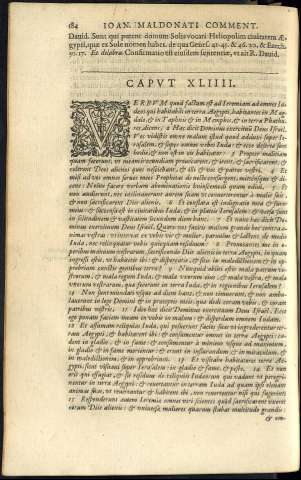 184 IOAN. MALDONATI COMMENT.
Dauid. Sunt qui putent domum Solis vocari Heliopolim ciuitatem Æ-
gypti, quæ ex Sole nomen habet. de qua Genes. 41. 45. & 46. 20. & Ezech.
30. 17. Et delubra. Confirmatio est eiusdem sententiæ, vt ait R. Dauid.
CAPVT XLIIII.
VERBVM quod factum est ad Ieremiam ad omnes Iu-
dæos qui habitabant in terra Aegypti, habitantes in Ma-
gdalo, & in Taphnis & in Memphis, & in terra Phathu-
res, dicens: 2 Hæc dicit Dominus exercituum Deus Israel.
Vos vidistis omne malum istud quod adduxi super Ie-
rusalem, & super omnes vrbes Iuda: & ecce desertæ sunt
hodie, & non est in eis habitator: 3 Propter malitiam
quam fecerunt, vt me ad iracundiam prouocarent, & irent, & sacrificarent, &
colerent Deos alienos quos nesciebant, & illi & vos & patres vestri. 4 Et
misi ad vos omnes seruos meos Prophetas de nocte consurgens, mittensque & di-
cens: Nolite facere verbum abominationis huiuscemodi quam odiui. 5 Et
non audierunt, nec inclinauerunt aurem suam vt conuerterentur a malis suis,
& non sacrificarent Diis alienis. 6 Et conflata est indignatio mea & furor
meus, & succensa est in ciuitatibus Iuda, & in plateis Ierusalem: & versæ sunt
in solitudinem & vastitatem secundum diem hanc. 7 Et nunc hæc dicit Do-
minus exercituum Deus Israel. Quare vos facitis malum grande hoc contra a-
nimas vestras: vt intereat ex vobis vir & mulier, paruulus & lactens de medio
Iuda, nec relinquatur vobis quicquam residuum: 8 Prouocantes me in o-
peribus manuum vestrarum, sacrificando Diis alienis in terra Aegypti, in quam
ingressi estis, vt habitetis ibi: & dispereatis, & sitis in maledictionem & in op-
probrium cunctis gentibus terræ? 9 Nunquid obliti estis mala patrum ve-
strorum, & mala regum Iuda, & mala vxorum eius, & mala vestra, & mala
vxorum vestrarum, quæ fecerunt in terra Iuda, & in regionibus Ierusalem?
10 Non sunt mundati vsque ad diem hanc, & non timuerunt, & non ambu-
lauerunt in lege Domini & in præceptis meis, quæ dedi coram vobis, & coram
patribus vestris. 11 Ideo hæc dicit Dominus exercituum Deus Israel. Ecce
ego ponam faciem meam in vobis in malum: & disperdam omnem Iudam.
12 Et assumam reliquias Iudæ, qui posuerunt facies suas vt ingrederentur ter-
ram Aegypti, & habitarent ibi: & consumentur omnes in terra Aegypti: ca-
dent in gladio, & in fame: & consumentur a minimo vsque ad maximum,
in gladio & in fame morientur: & erunt in iusiurandum & in miraculum, &
in maledictionem, & in opprobrium. 13 Et visitabo habitatores terræ Ae-
gypti, sicut visitaui super Ierusalem: in gladio & fame, & peste. 14 Et non
erit qui effugiat, & sit residuus de reliquiis Iudæorum qui vadunt vt peregri-
nentur in terra Aegypti: & reuertantur in terram Iuda ad quam ipsi eleuant
animas suas, vt reuertantur & habitent ibi, non reuertentur nisi qui fugerint.
15 Responderunt autem Ieremiæ omnes viri scientes quod sacrificarent vxores
eorum Diis alienis: & vniuersæ mulieres quarum stabat multitudo grandis:
& om-